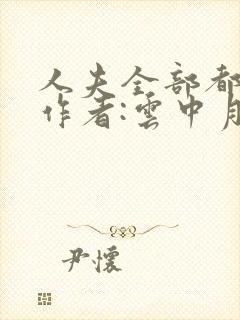 人夫全部都
作者:雲中月
尹懷